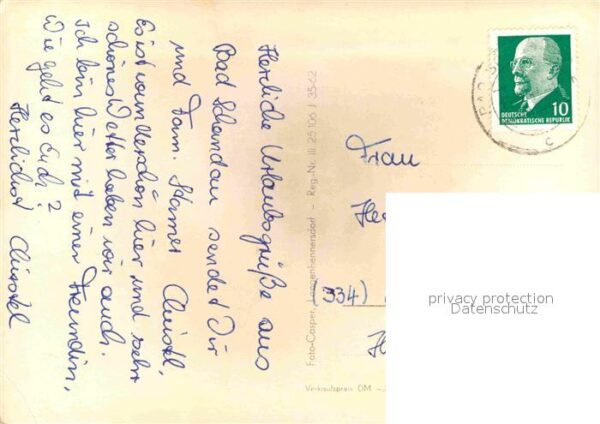 Herzliche Urlaubsgrüße aus
Bad Schandau sendet Dir
und Fam. Christl,
Es ist wunderschön hier und sehr
schönes Wetter haben wir auch.
Ich bin hier mit einer Freundin,
Wie geht es Euch?
Herzlichst Christel
Foto-Casper, Langenhennersdorf - Reg.-Nr. III 25106 | 35-62
Verkaufspreis DM
DEUTSCHE
DEMOKRATISCHE REPUBLIK
10
BAD
c
Frau
(334)
privacy protection
Datenschutz